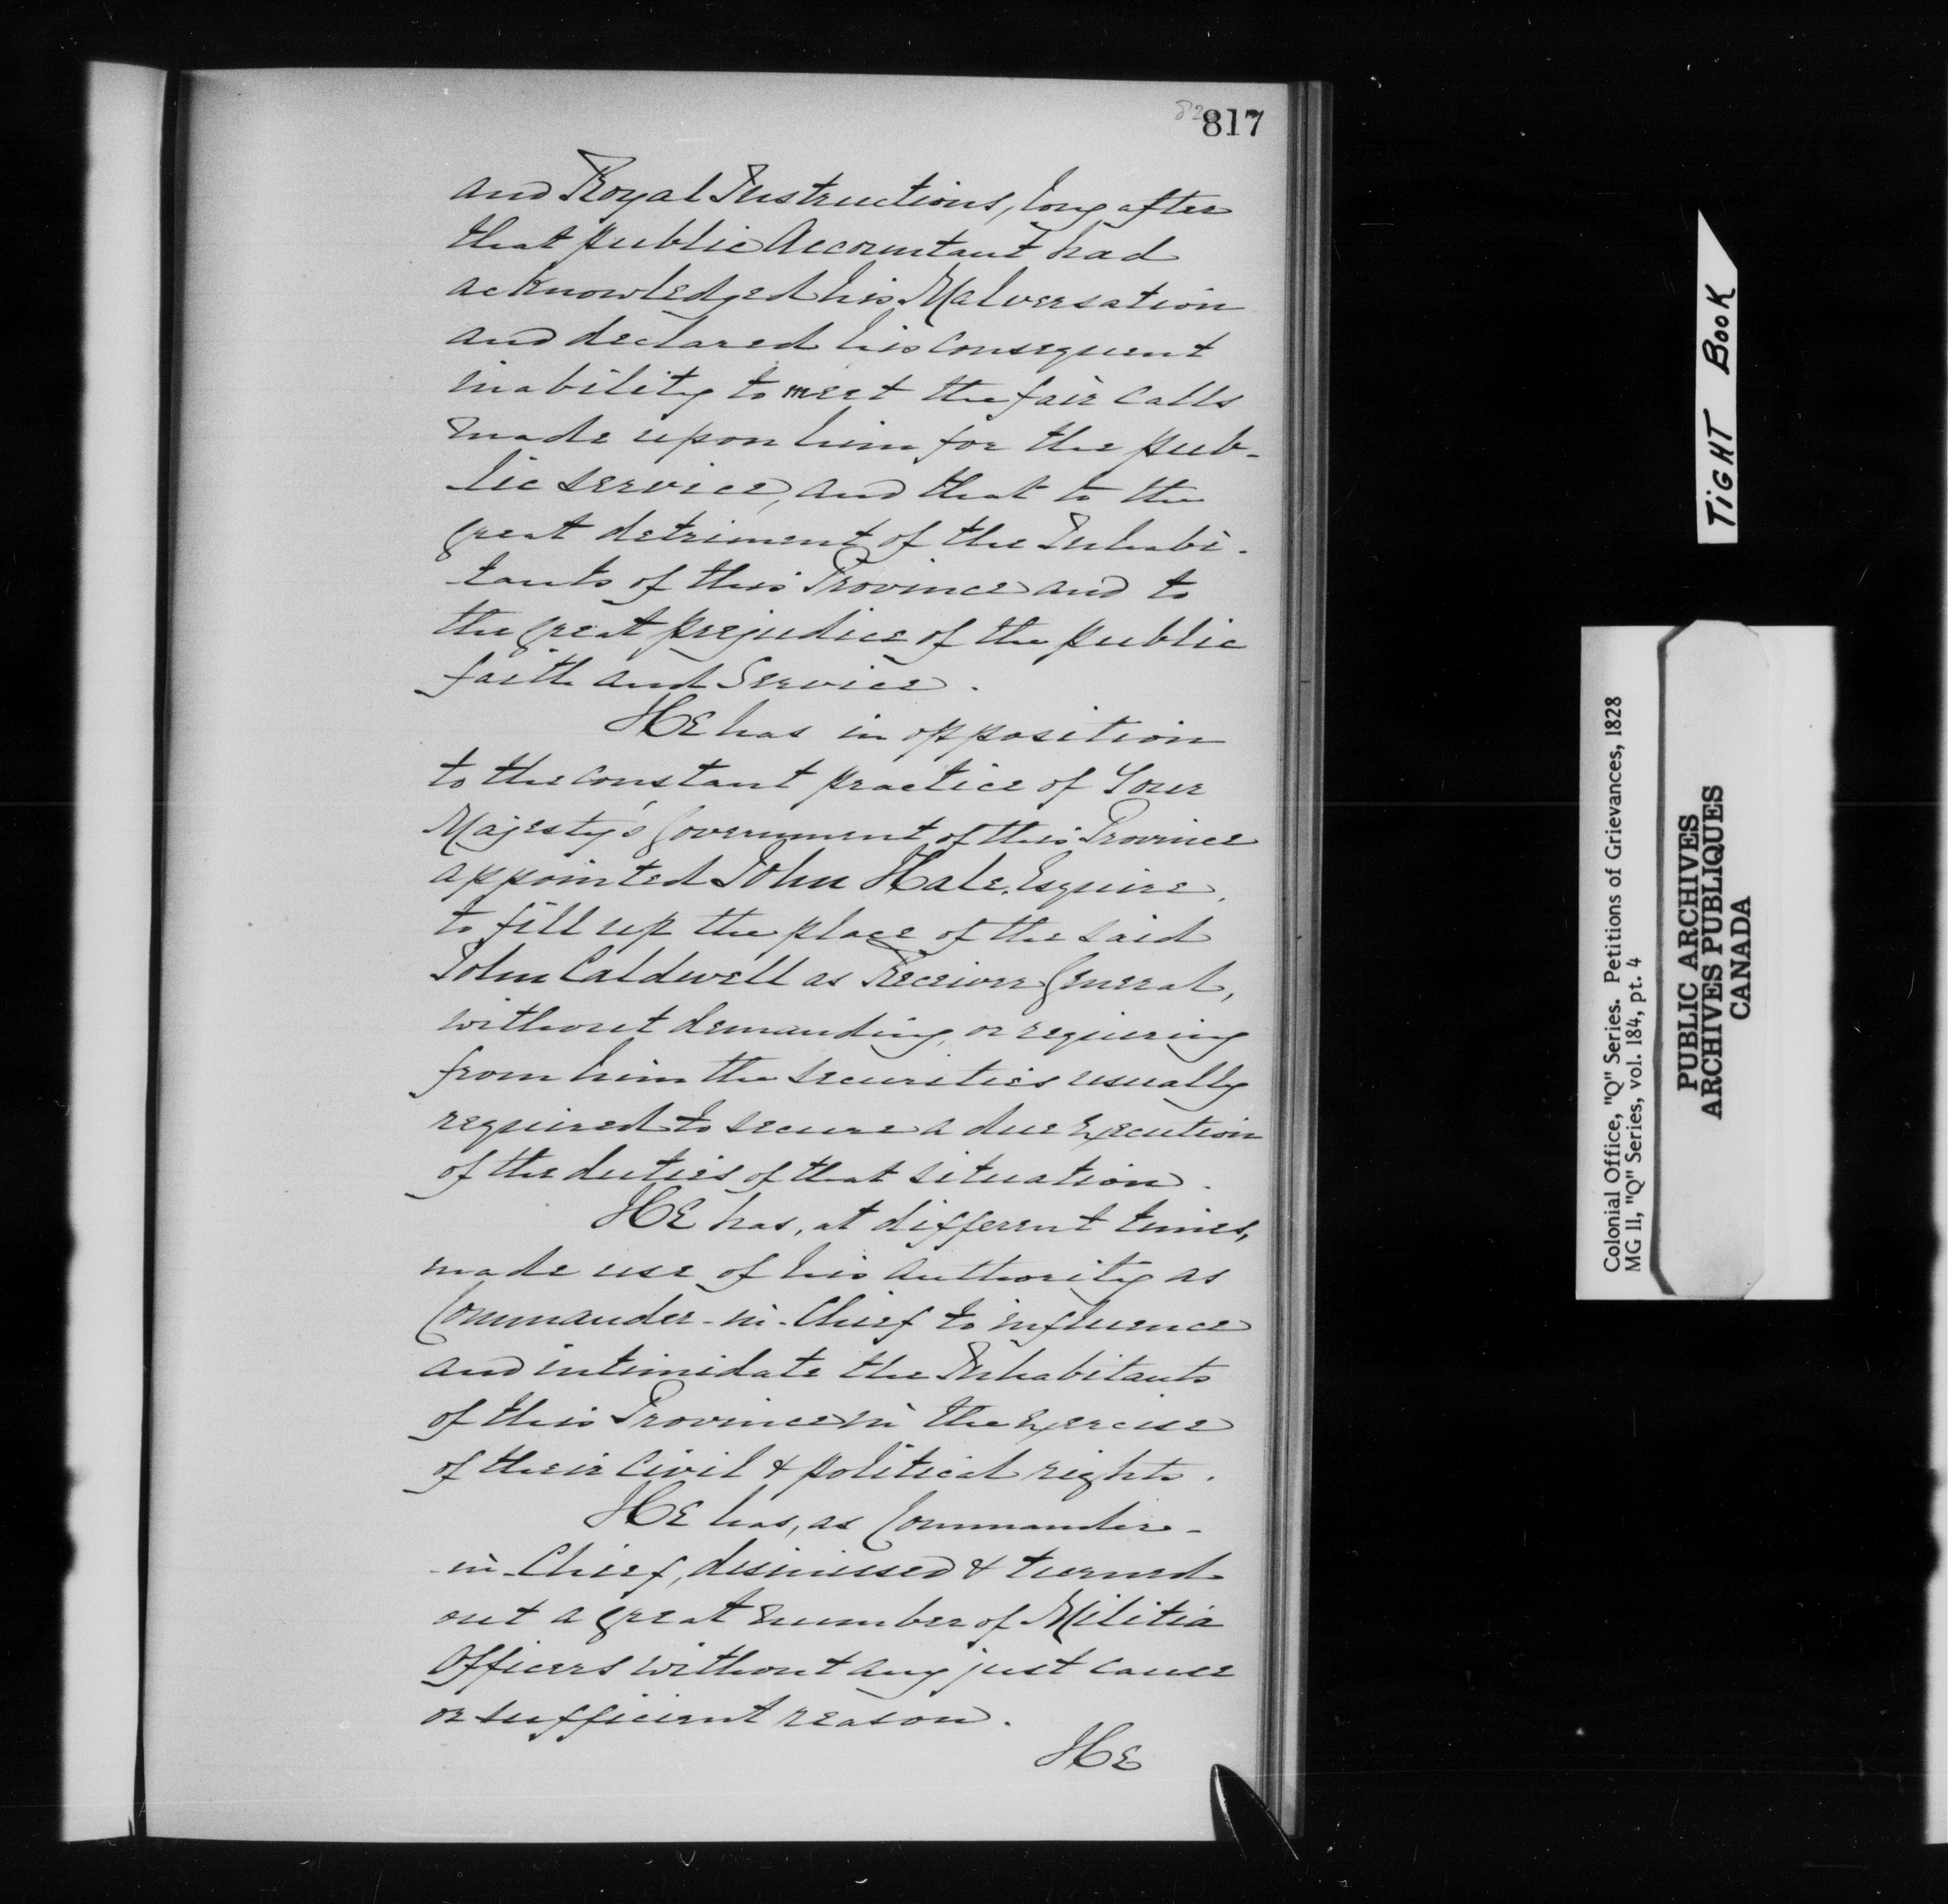 82
817
and Royal Instructions, long after
that public Accountant had
acknowledged his Malversation
and declared his consequent
inability to meet the fair calls
made upon him for the pub-
lic service, and that to the
great detriment of the Inhabi-
tants of this Province and to
the great prejudice of the public
faith and Service.
HE has in opposition
to the constant practice of Your
Majesty's Government of this Province
appointed John Hale, Esquire,
to fill up the place of the said
John Caldwell as Receiver General,
without demanding, or requiring
from him the securities usually
required to secure a due Execution
of the duties of that situation.
HE has, at different times,
made use of his authority as
Commander-in-Chief to influence
and intimidate the Inhabitants
of this Province in the Exercise
of their civil & political rights.
HE has, as Commander-
-in-Chief, dismissed & turned
out a great number of Militia
Officers without any just cause
or sufficient reason.
HE
TIGHT BOOK
Colonial Office, "Q" Series. Petitions of Grievances, 1828
MG 11, "Q" Series, vol. 184, pt. 4
PUBLIC ARCHIVES
ARCHIVES PUBLIQUES
CANADA